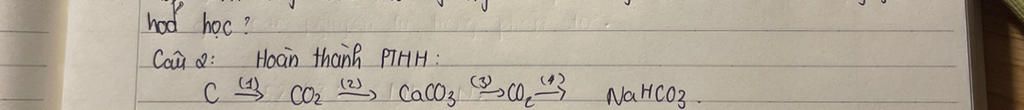 hoá học?
Câu 2: Hoàn thành PTHH:
C (1)→ CO2 (2)→ CaCO3 (3)→ CO2 (4)→ NaHCO3.